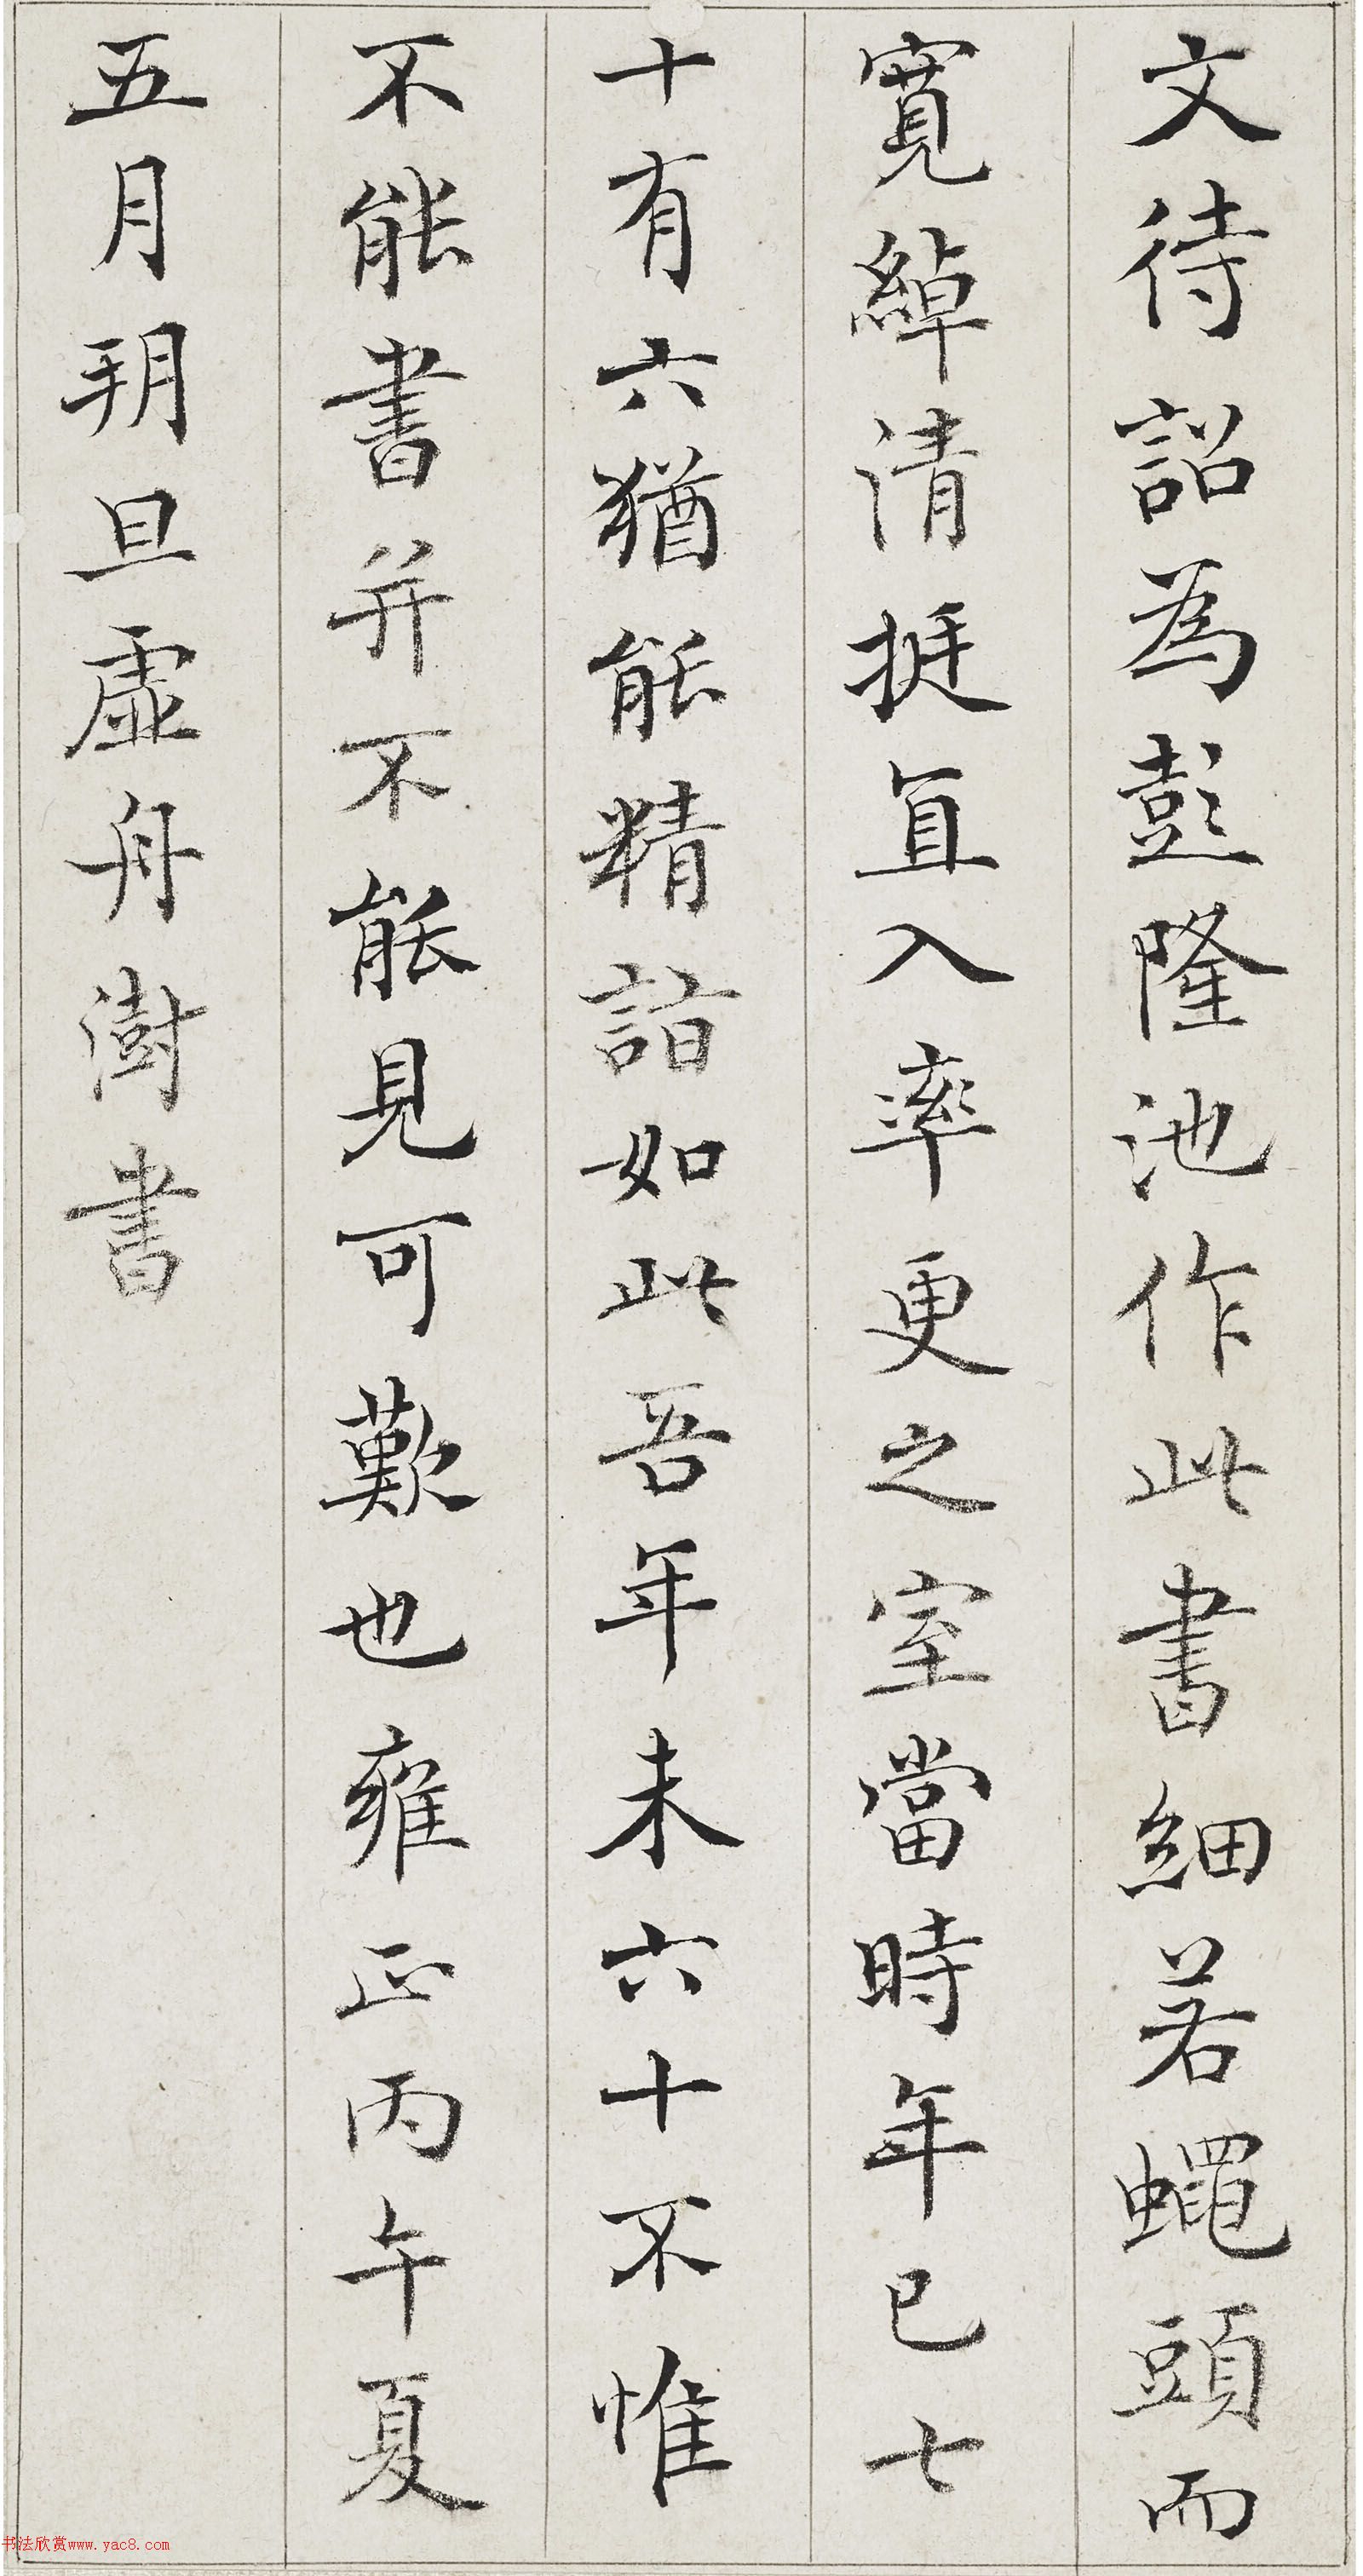 文待詔為彭隆池作此書細若蠅頭而
寬綽清挺直入率更之室當時年已七
十有六猶能精詣如此吾年未六十不惟
不能書并不能見可歎也雍正丙午夏
五月朔旦虛舟澍書
书法欣赏www.yac8.com